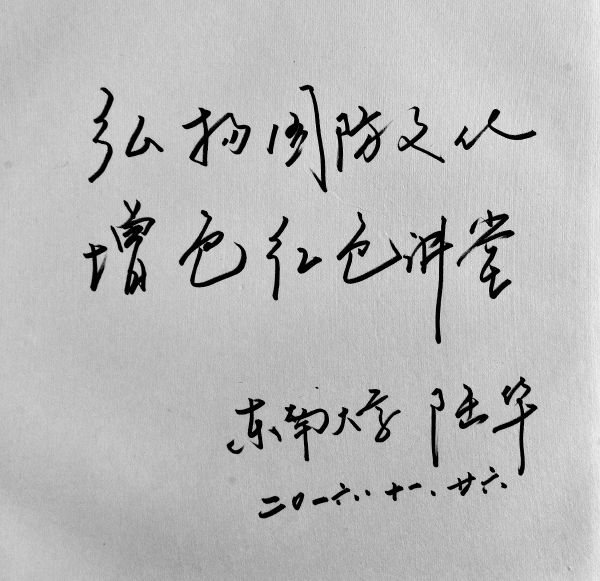 弘扬国防文化
增色红色讲堂
东南大学 陆华
二〇一六.十一.廿六.